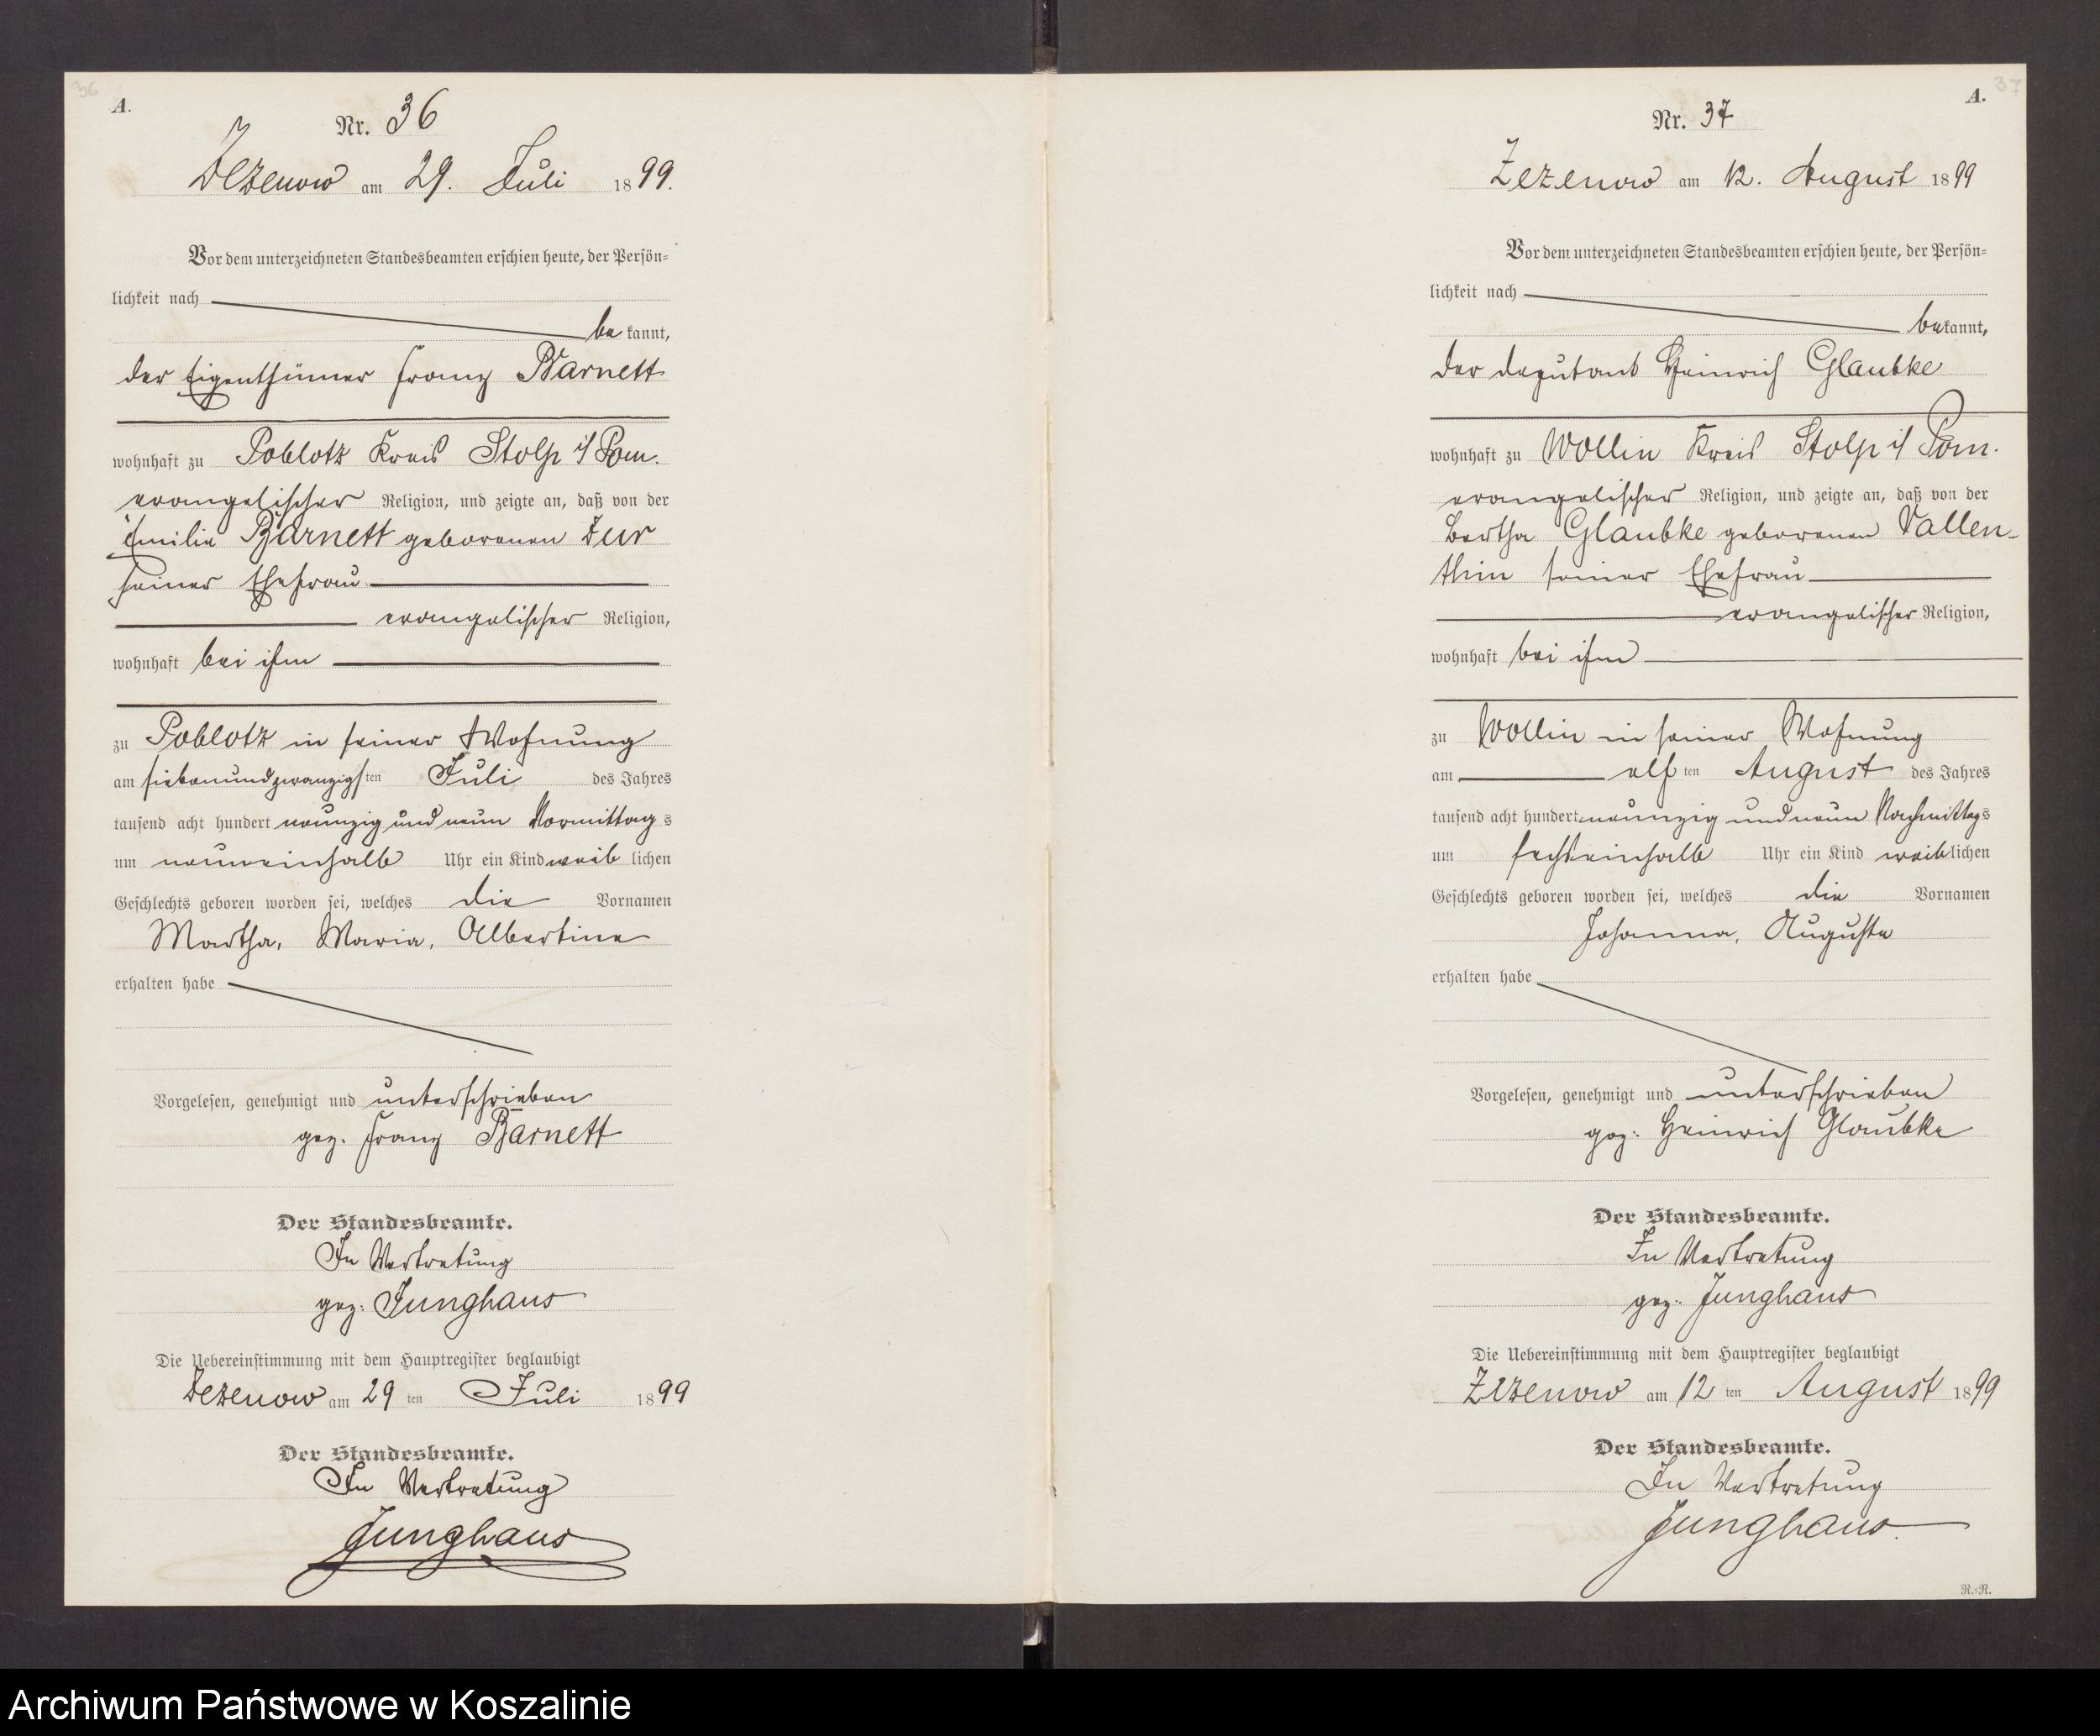 36
A.
Nr. 36
Zezenow am 29. Juli 1899.
Vor dem unterzeichneten Standesbeamten erschien heute, der Persön-
lichkeit nach
bekannt,
der Eigenthümer Franz Barnett
wohnhaft zu Poblotz Kreis Stolp i/Pom.
evangelischer Religion, und zeigte an, daß von der
Emilie Barnett geborenen Zur
seiner Ehefrau
evangelischer Religion,
wohnhaft bei ihm
zu Poblotz in seiner Wohnung
am siebenundzwanzigsten Juli des Jahres
tausend acht hundert neunzig und neun Vormittags
um neuneinhalb Uhr ein Kind weiblichen
Geschlechts geboren worden sei, welches die Vornamen
Martha, Maria, Albertine
erhalten habe
Vorgelesen, genehmigt und unterschrieben
gez. Franz Barnett
Der Standesbeamte.
In Vertretung
gez: Junghans
Die Uebereinstimmung mit dem Hauptregister beglaubigt
Zezenow am 29ten Juli 1899
Der Standesbeamte.
In Vertretung
Junghans
37
A.
Nr. 37
Zezenow am 12. August 1899
Vor dem unterzeichneten Standesbeamten erschien heute, der Persön-
lichkeit nach
bekannt,
der Deputant Heinrich Glaubke
wohnhaft zu Wollin Kreis Stolp i/Pom.
evangelischer Religion, und zeigte an, daß von der
Bertha Glaubke geborenen Vallen-
thin seiner Ehefrau
evangelischer Religion,
wohnhaft bei ihm
zu Wollin in seiner Wohnung
am elften August des Jahres
tausend acht hundert neunzig und neun Nachmittags
um sechseinhalb Uhr ein Kind weiblichen
Geschlechts geboren worden sei, welches die Vornamen
Johanna, Auguste
erhalten habe
Vorgelesen, genehmigt und unterschrieben
gez: Heinrich Glaubke
Der Standesbeamte.
In Vertretung
gez: Junghans
Die Uebereinstimmung mit dem Hauptregister beglaubigt
Zezenow am 12ten August 1899
Der Standesbeamte.
In Vertretung
Junghans.
R.=R.
Archiwum Państwowe w Koszalinie